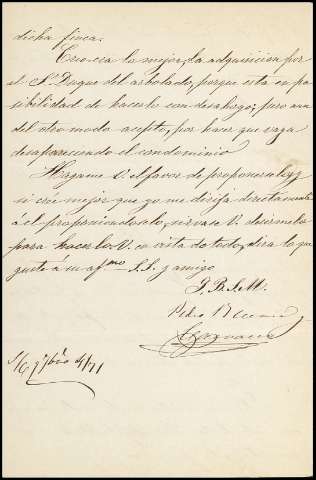 dicha finca.
Creeria lo mejor, la adquisicion por
el Sr. Duque del arbolado, porque está en po
sibilidad de hacerlo con desahogo; pero aun
del otro modo acepto, por hacer que vaya
desapareciendo el condominio
Hagame V. el favor de proponerselo, y
si cree mejor que yo me dirija directamente
á él proponiendoselo, sirvase V. decirmelo
para hacerlo. V. en vista de todo, dira lo que
guste á su afmo. S.S. y amigo
Q. B. S. M.
Pedro
S/C 4/71